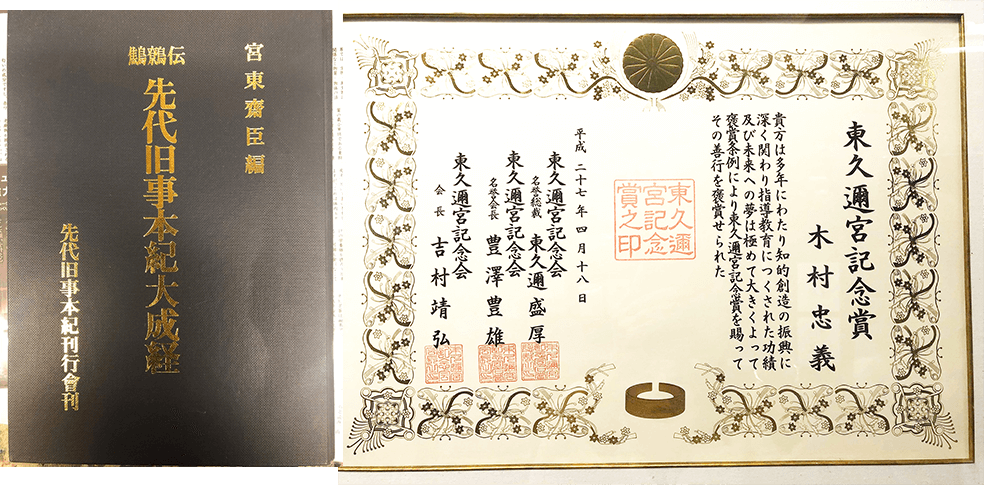 宮東齋臣編
鷦鷯伝
先代旧事本紀大成経
先代旧事本紀刊行會刊
東久邇宮記念賞
木村忠義
貴方は多年にわたり知的創造の振興に
深く関わり指導教育につくされた功績
及び未来への夢は極めて大きくよって
褒賞条例により東久邇宮記念賞を賜って
その善行を褒賞せられた
東久邇
宮記念
賞之印
平成二十七年四月十八日
東久邇宮記念会
名誉総裁 東久邇盛厚
東久邇宮記念会
名誉会長 豊澤豊雄
東久邇宮記念会
会長 吉村靖弘